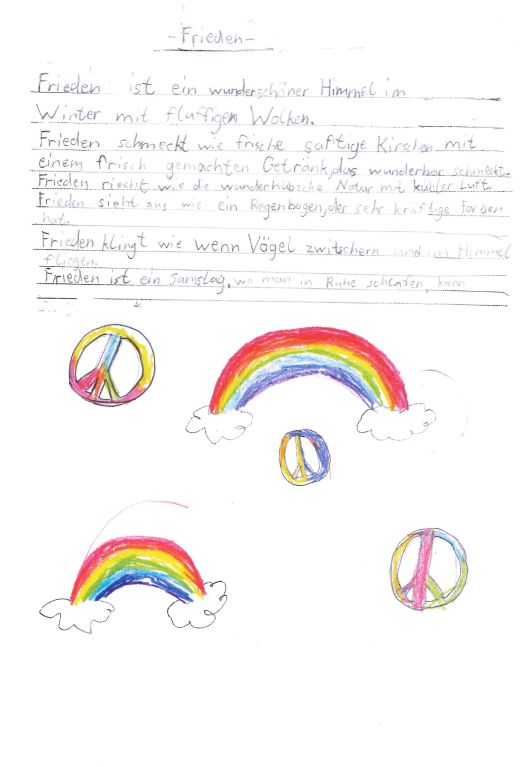 -Frieden-
Frieden ist ein wunderschöner Himmel im
Winter mit fluffigen Wolken.
Frieden schmeckt wie frische saftige Kirschen mit
einem frisch gemachten Getränk, das wunderbar schmeckt.
Frieden riecht wie die wunderhübsche Natur mit kühler Luft.
Frieden sieht aus wie ein Regenbogen, der sehr kräftige Farben
hat.
Frieden klingt wie wenn Vögel zwitschern und im Himmel
fliegen.
Frieden ist ein Samstag, wo man in Ruhe schlafen, kann